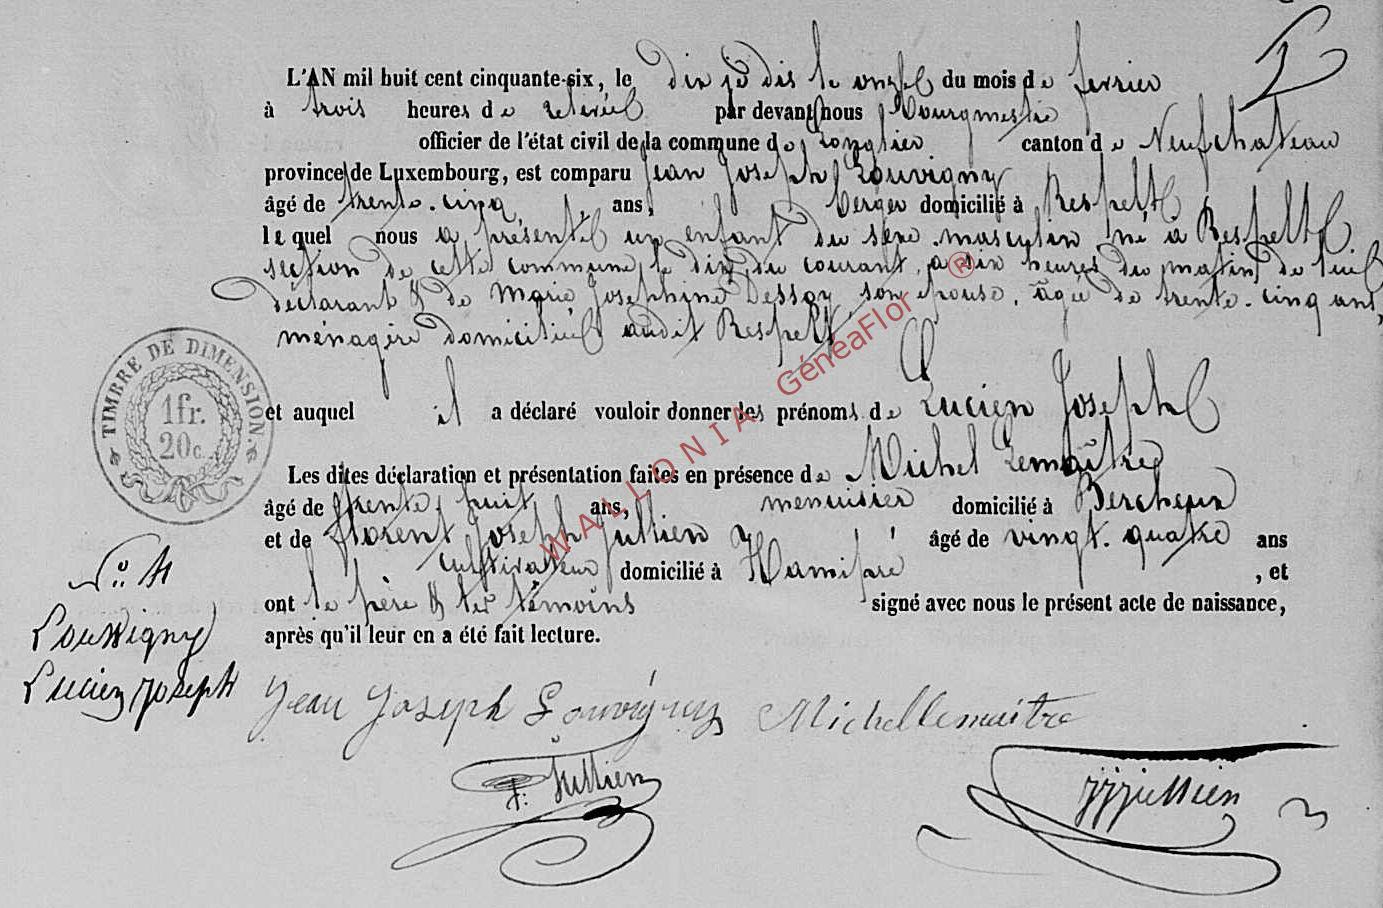 L'AN mil huit cent cinquante-six, le dix je dis le onze du mois de fevrier
à trois heures de relevée par devant nous Bourgmestre
officier de l'état civil de la commune de Longlier canton de Neufchateau
province de Luxembourg, est comparu Jean Joseph Louvigny
âgé de trente-cinq ans, berger domicilié à Respelt
lequel nous a présenté un enfant du sexe masculin né à Respelt
section de cette commune, le dix du courant, a six heures du matin, de lui
déclarant & de Marie Josephine Dessoy, son épouse, âgée de trente-cinq ans,
ménagère domiciliée audit Respelt
TIMBRE DE DIMENSION.
1fr.
20c.
et auquel il a déclaré vouloir donner les prénoms de Lucien Joseph
Les dites déclaration et présentation faites en présence de Michel Lemaître
âgé de trente-huit ans, menuisier domicilié à Bercheux
et de florent Joseph Jullien âgé de vingt-quatre ans
cultivateur domicilié à Hamipré, et
ont le père & les témoins signé avec nous le présent acte de naissance,
après qu'il leur en a été fait lecture.
No: 4
Louvigny
Lucien Joseph
Jean Joseph Louvigny Michel Lemaitre
f: Jullien jjjullien
WALLONIA GéneaFlor ®